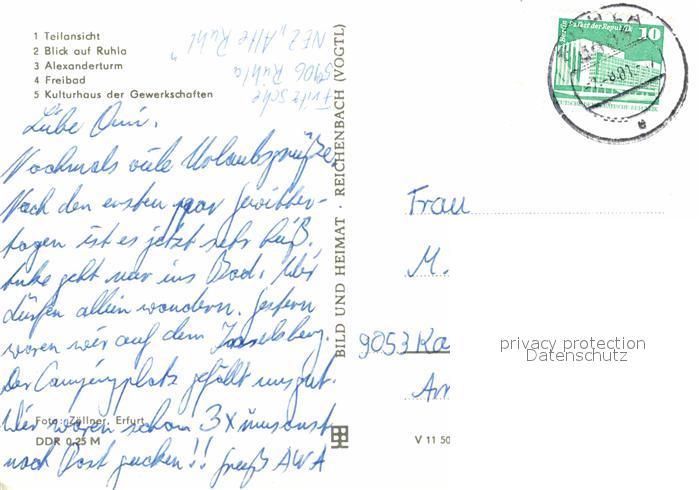 1 Teilansicht
2 Blick auf Ruhla
3 Alexanderturm
4 Freibad
5 Kulturhaus der Gewerkschaften
Fritzsche
5906 Ruhla
NEZ „Alte Ruhl"
Liebe Omi.
Nochmals viele Urlaubsgrüße.
Nach den ersten paar Gewitter-
tagen ist es jetzt sehr heiß.
geht nur ins Bad. Wir
dürfen allein wandern. Gestern
waren wir auf dem Inselsberg.
Der Campingplatz gefällt uns gut.
Wir waren schon 3x umsonst
nach Post gucken!! Gruß AWA
Foto: Zöllner, Erfurt
DDR 0,25 M
BILD UND HEIMAT · REICHENBACH (VOGTL)
V 11 50
Berlin Palast der Republik
10
Frau
M.
9053 Ka
privacy protection
Datenschutz